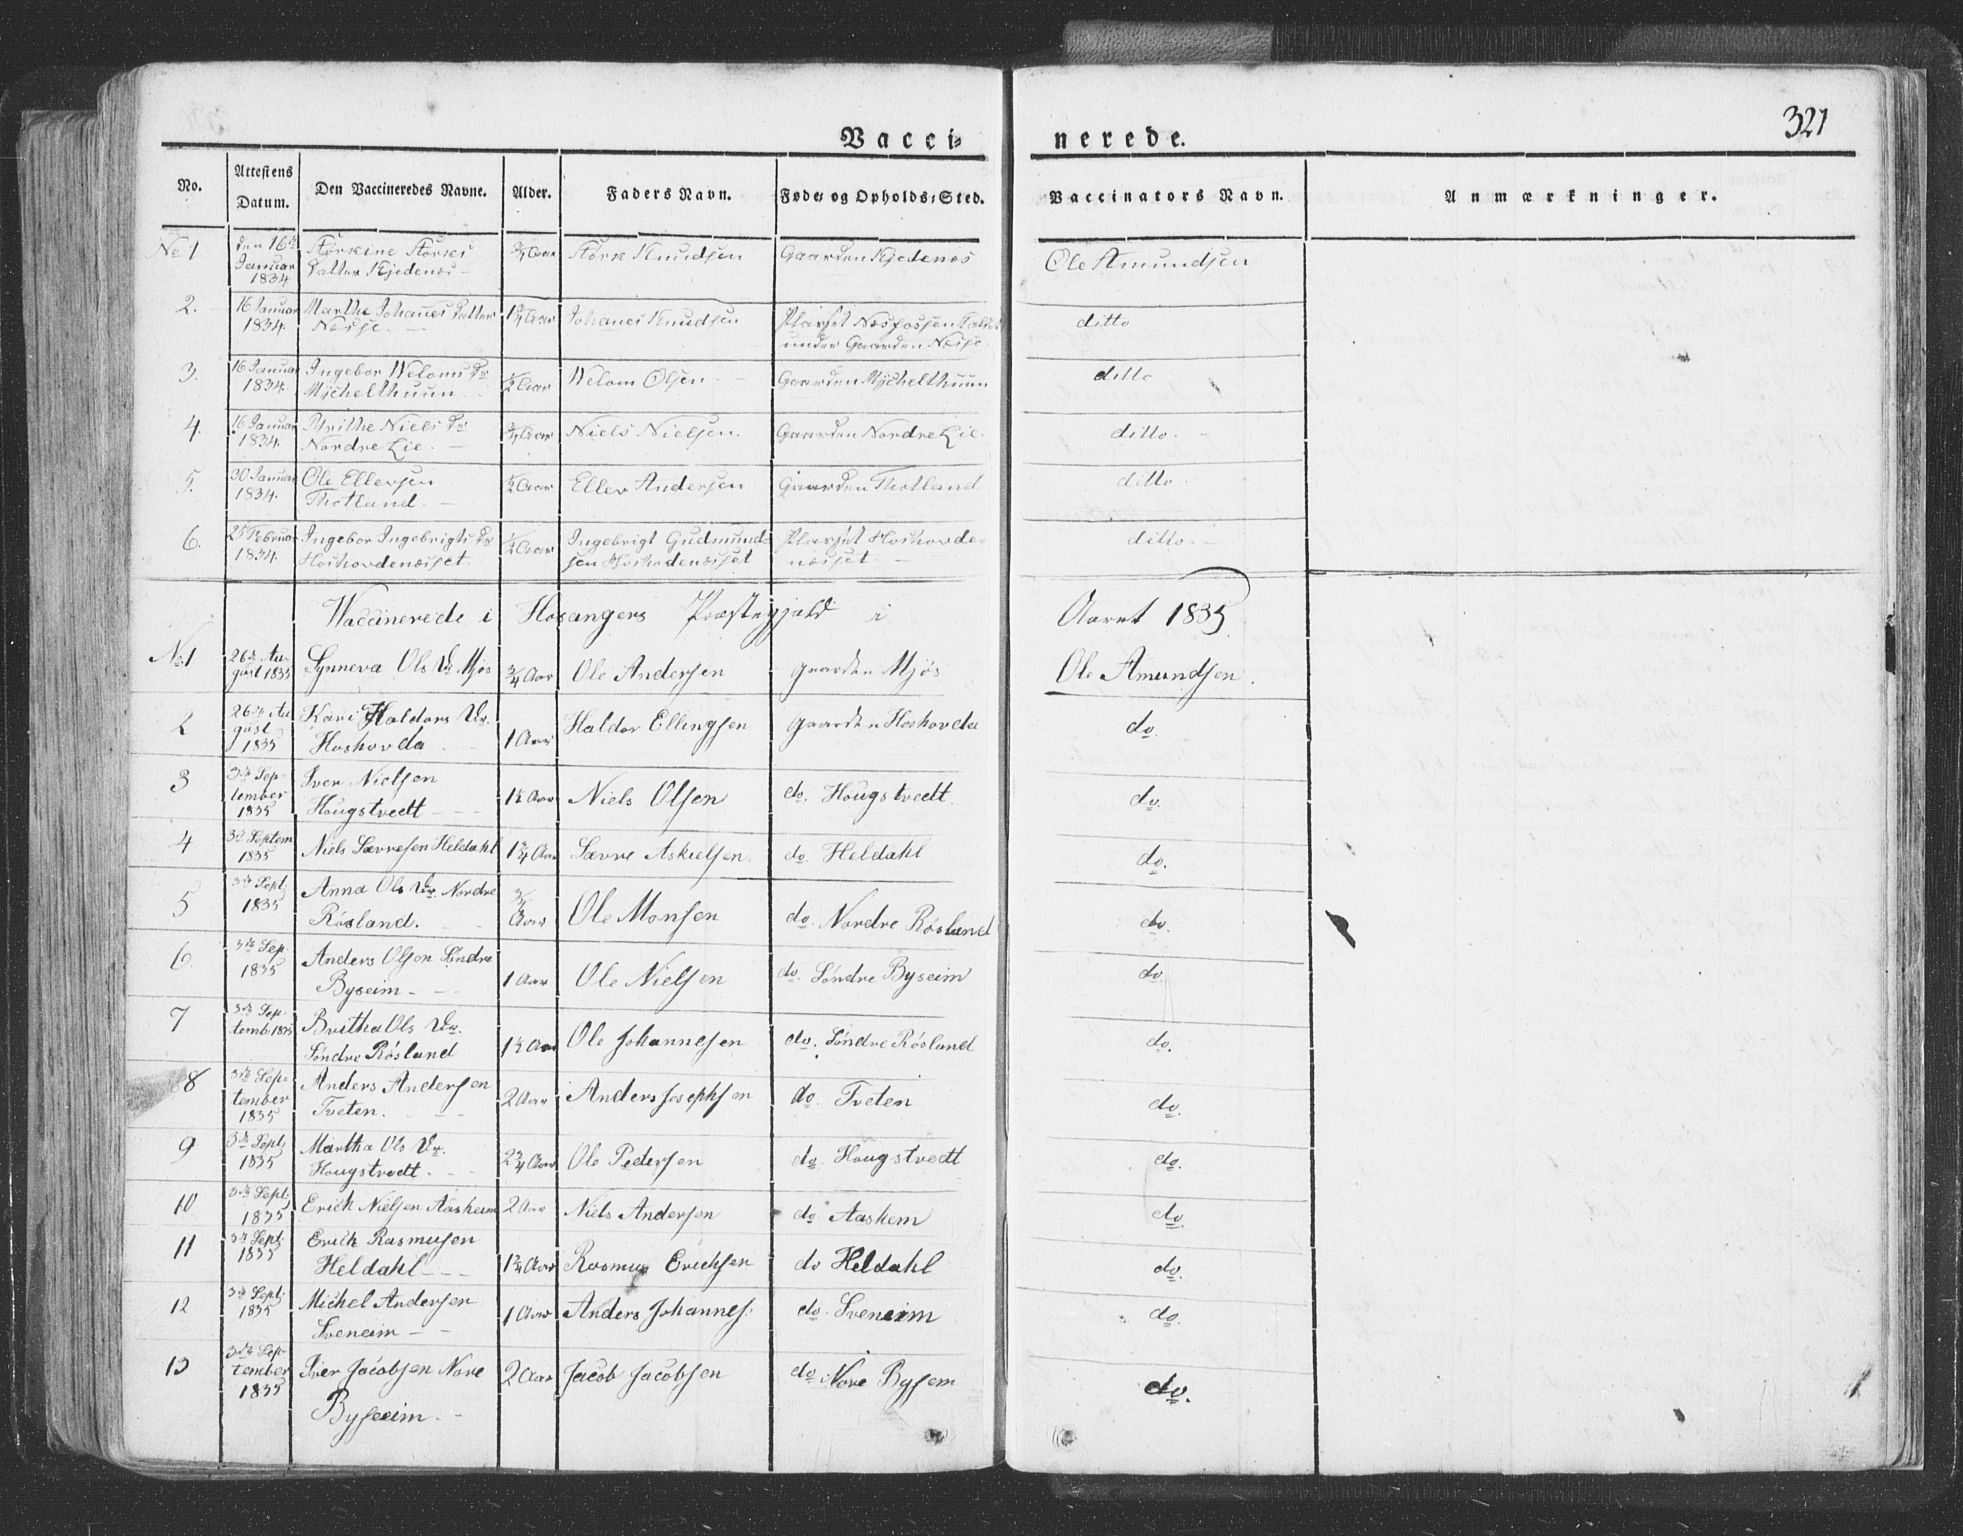 321
Vacci- nerede.
No. Attestens Datum. Den Vaccineredes Navne. Alder. Faders Navn. Føde- og Opholds-Sted. Vaccinators Navn. Anmærkninger.
No 1 den 16de Januar 1834 Størkine Størks Datter Kjedenes - 3/4 Aar Størk Knudsen Gaarden Kjedenes Ole Amundsen
2. 16 Januar 1834. Marthe Johanes Datter Nesse. - Aar Johanes Knudsen Pladset under Gaarden Nesse. ditto
3. 16 Januar 1834. Ingebor Weloms Dr Mjchelthuun 1/2 Aar Welom Olsen - Gaarden Mjchelthuun ditto
4. 16 Januar 1834. Brithe Niels Dr Nordre Lie. - 3/4 Aar Niels Nielsen. Gaarden Nordre Lie. ditto.
5. 30 Januar 1834. Ole Ellersen Thotland. - 1/2 Aar Eller Andersen Gaarden Thotland ditto.
6. 25 Februar 1834. Ingebor Ingebrigts Dr Hoshovdenæsset. 1/2 Aar Ingebrigt Gudmundsen Hoshodenæsset Pladset Hoshovdenæsset. - ditto. -
Waccinerede i Hosangers Præstegjald i Aaret 1835
No 1 26de August 1835 Synneva Ols Dr Mjøs 3/4 Aar Ole Andersen gaarden Mjøs Ole Amundsen.
2 26de August 1835 Kari Haldors Dr. Hoshovda 1 Aar Haldor Ellingsen gaarden Hoshovda do.
3 3de September 1835 Iver Nielsen Hougstvedt - 1½ Aar Niels Olsen do. Hougstvedt. do.
4 3de Septem 1835 Niels Sævresen Heldahl 1¾ Aar Sævre Askielsen. do. Heldahl do.
5 3de Sept. 1835 Anna Ols Dr. Nordre Røsland. Aar Ole Monsen do. Nordre Røsland do.
6. 3de Sep. 1835 Anders Olsen Søndre Byseim - 1 Aar Ole Nielsen do. Søndre Byseim do.
7 3de Septemb. 1835 Britha Ols Dr. Søndre Røsland 1½ Aar Ole Johannesen do. Søndre Røsland do.
8 3de September 1835 Anders Andersen Tveten. - 2 Aar Anders Josephsen do. Tveten do.
9 3de Sept. 1835 Martha Ols Dr. Hougstvedt. - 2¾ Aar Ole Pedersen do. Hougstvedt do.
10 3de Sept. 1835 Erich Nielsen Aasheim 2 Aar Niels Andersen do. Aashem do.
11 3de Sept. 1835 Erich Rasmusen Heldahl - 1¾ Aar Rasmus Erichsen do Heldahl do.
12 3de Sept. 1835 Michel Andersen Sveneim - 1 Aar Anders Johannes: do. Sveneim do.
13 3de September 1835 Iver Jacobsen Nore Byseeim. - 2 Aar Jacob Jacobsen do Nore Bysem do.